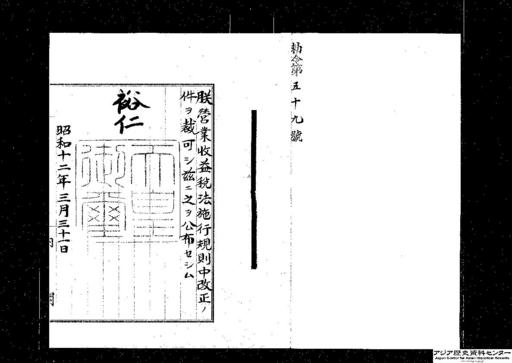 勅令第五十九號
朕營業收益税法施行規則中改正ノ
件ヲ裁可シ茲ニ之ヲ公布セシム
裕仁
天皇
御璽
昭和十二年三月三十一日
アジア歴史資料センター
Japan Center for Asian Historical Records